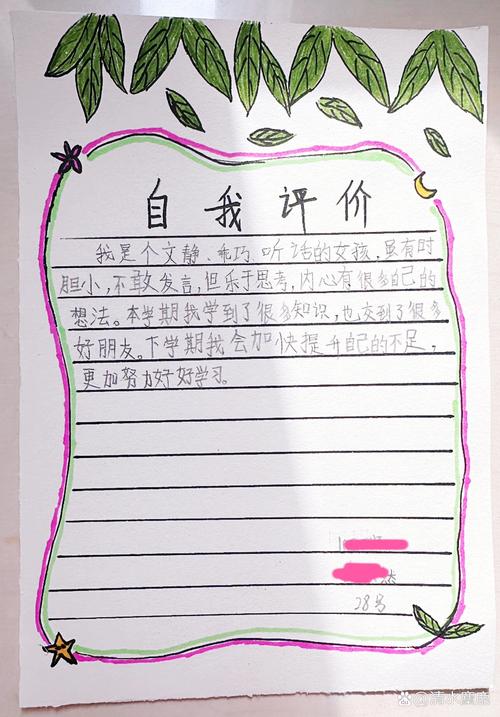 自我评价
我是个文静、乖巧、听话的女孩,虽有时
胆小,不敢发言,但乐于思考,内心有很多自己的
想法。本学期我学到了很多知识,也交到了很多
好朋友。下学期我会加快提升自己的不足,
更加努力好好学习。
28号